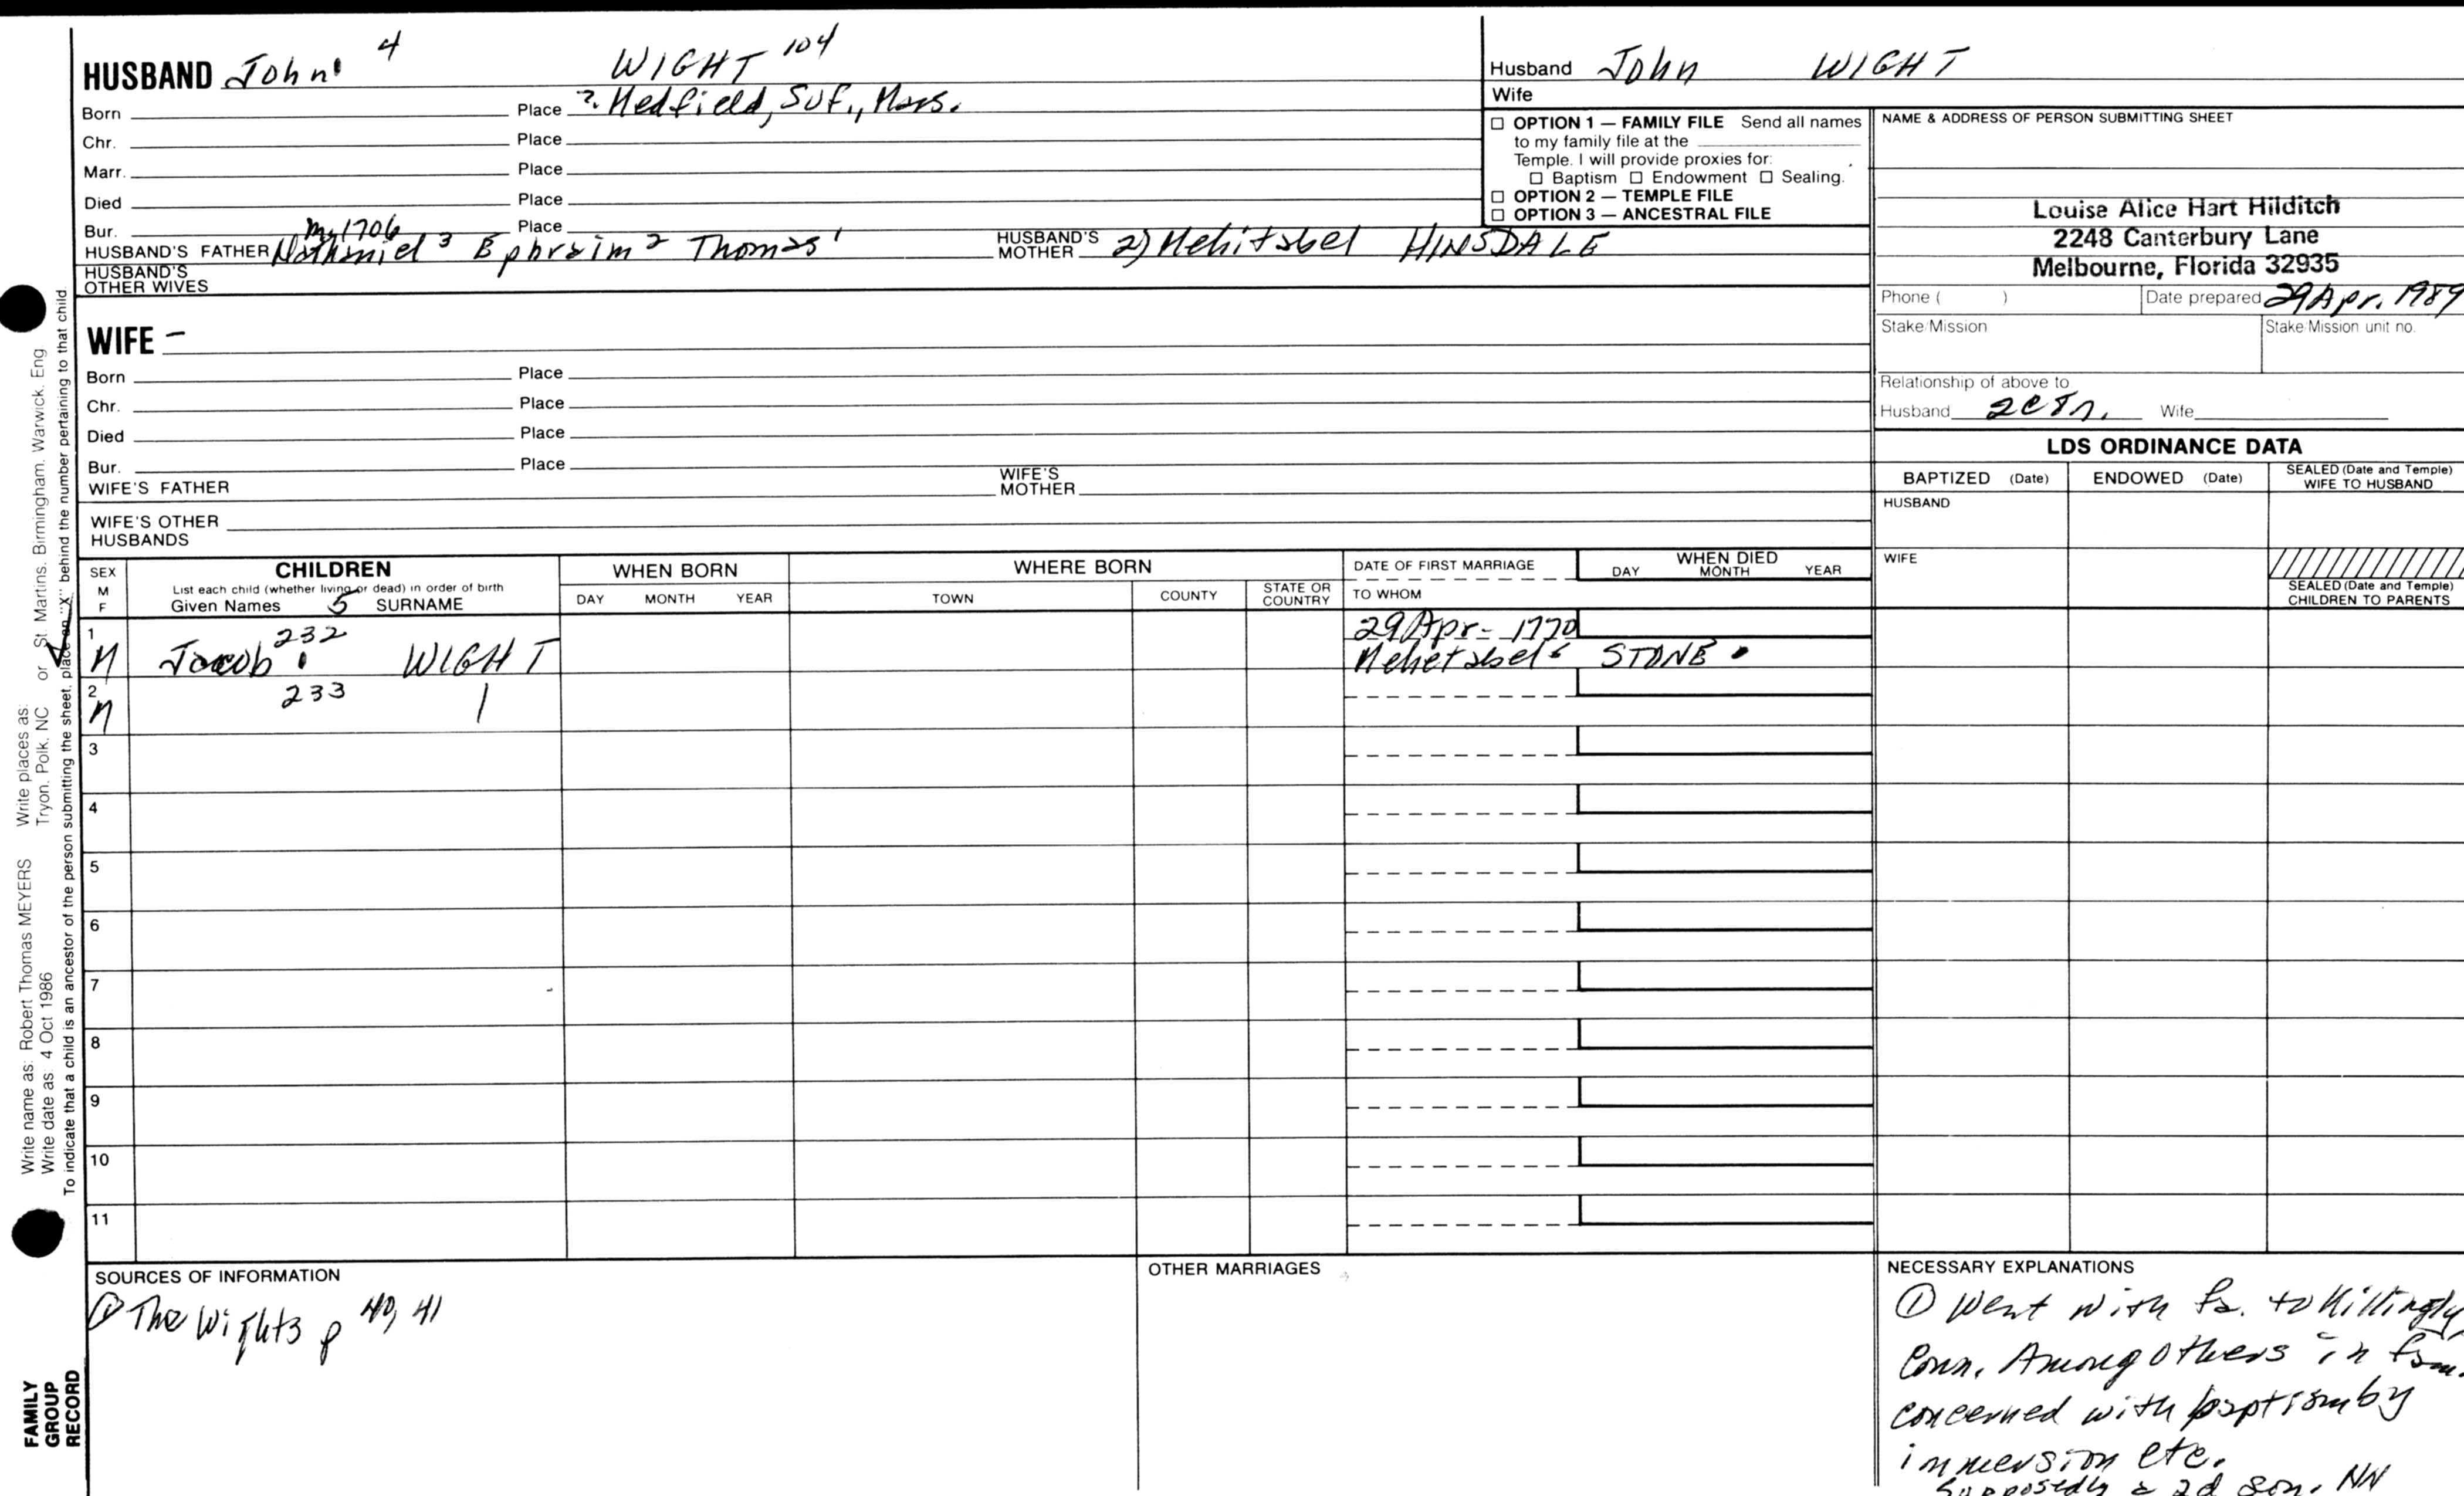 HUSBAND John 4 WIGHT 104
Born Place ? Medfield, Suf., Mass.
Chr. Place
Marr. Place
Died Place
Bur. Place
m 1706
HUSBAND'S FATHER Nathaniel 3 Ephraim 2 Thomas 1 HUSBAND'S MOTHER 2) Mehitabel HINSDALE
HUSBAND'S OTHER WIVES
WIFE –
Born Place
Chr. Place
Died Place
Bur. Place
WIFE'S FATHER WIFE'S MOTHER
WIFE'S OTHER HUSBANDS
Husband John WIGHT
Wife
☐ OPTION 1 — FAMILY FILE Send all names
to my family file at the
Temple. I will provide proxies for:
☐ Baptism ☐ Endowment ☐ Sealing.
☐ OPTION 2 — TEMPLE FILE
☐ OPTION 3 — ANCESTRAL FILE
NAME & ADDRESS OF PERSON SUBMITTING SHEET
Louise Alice Hart Hilditch
2248 Canterbury Lane
Melbourne, Florida 32935
Phone ( ) Date prepared 29 Apr. 1989
Stake/Mission Stake/Mission unit no.
Relationship of above to
Husband Wife
LDS ORDINANCE DATA
BAPTIZED (Date) ENDOWED (Date) SEALED (Date and Temple) WIFE TO HUSBAND
HUSBAND
WIFE
SEALED (Date and Temple)
CHILDREN TO PARENTS
SEX M F
CHILDREN
List each child (whether living or dead) in order of birth
Given Names 5 SURNAME
WHEN BORN
DAY MONTH YEAR
WHERE BORN
TOWN COUNTY STATE OR COUNTRY
DATE OF FIRST MARRIAGE
TO WHOM
WHEN DIED
DAY MONTH YEAR
1 M Jacob 232 WIGHT 29 Apr - 1770
Mehetabel STONE
2 M 233
3
4
5
6
7
8
9
10
11
SOURCES OF INFORMATION
① The Wights p 40, 41
OTHER MARRIAGES
NECESSARY EXPLANATIONS
① Went with fa. to Killingly
Conn. Among others in fam.
concerned with baptism by
immersion etc.
Supposedly a 2d son. NN
Write name as: Robert Thomas MEYERS Write places as:
Write date as: 4 Oct 1986 Tryon, Polk, NC or St. Martins, Birmingham, Warwick, Eng
To indicate that a child is an ancestor of the person submitting the sheet, place an "X" behind the number pertaining to that child.
FAMILY
GROUP
RECORD